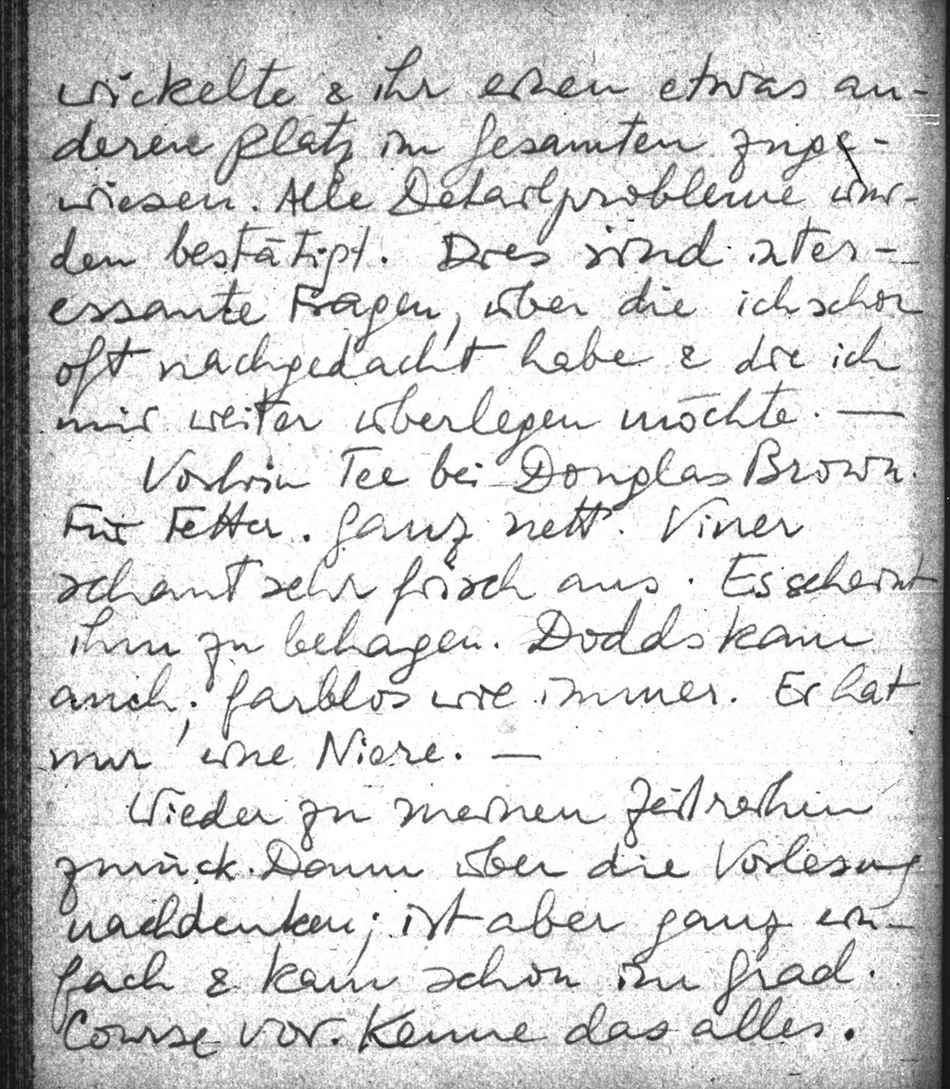 wickelte & ihr einen etwas an-
deren Platz im Gesamten zuge-
wiesen. Alle Detailprobleme wur-
den bestätigt. Dies sind inter-
essante Fragen, über die ich schon
oft nachgedacht habe & die ich
mir weiter überlegen möchte. —
Vorhin Tee bei Douglas Brown.
Für Fetter. Ganz nett. Viner
schaut sehr frisch aus. Es scheint
ihm zu behagen. Dodds kam
auch; farblos wie immer. Er hat
nur eine Niere. —
Wieder zu meinen Zeitreihen
zurück. Dann über die Vorlesung
nachdenken; ist aber ganz ein-
fach & kam schon im Grad.
Course vor. Kenne das alles.